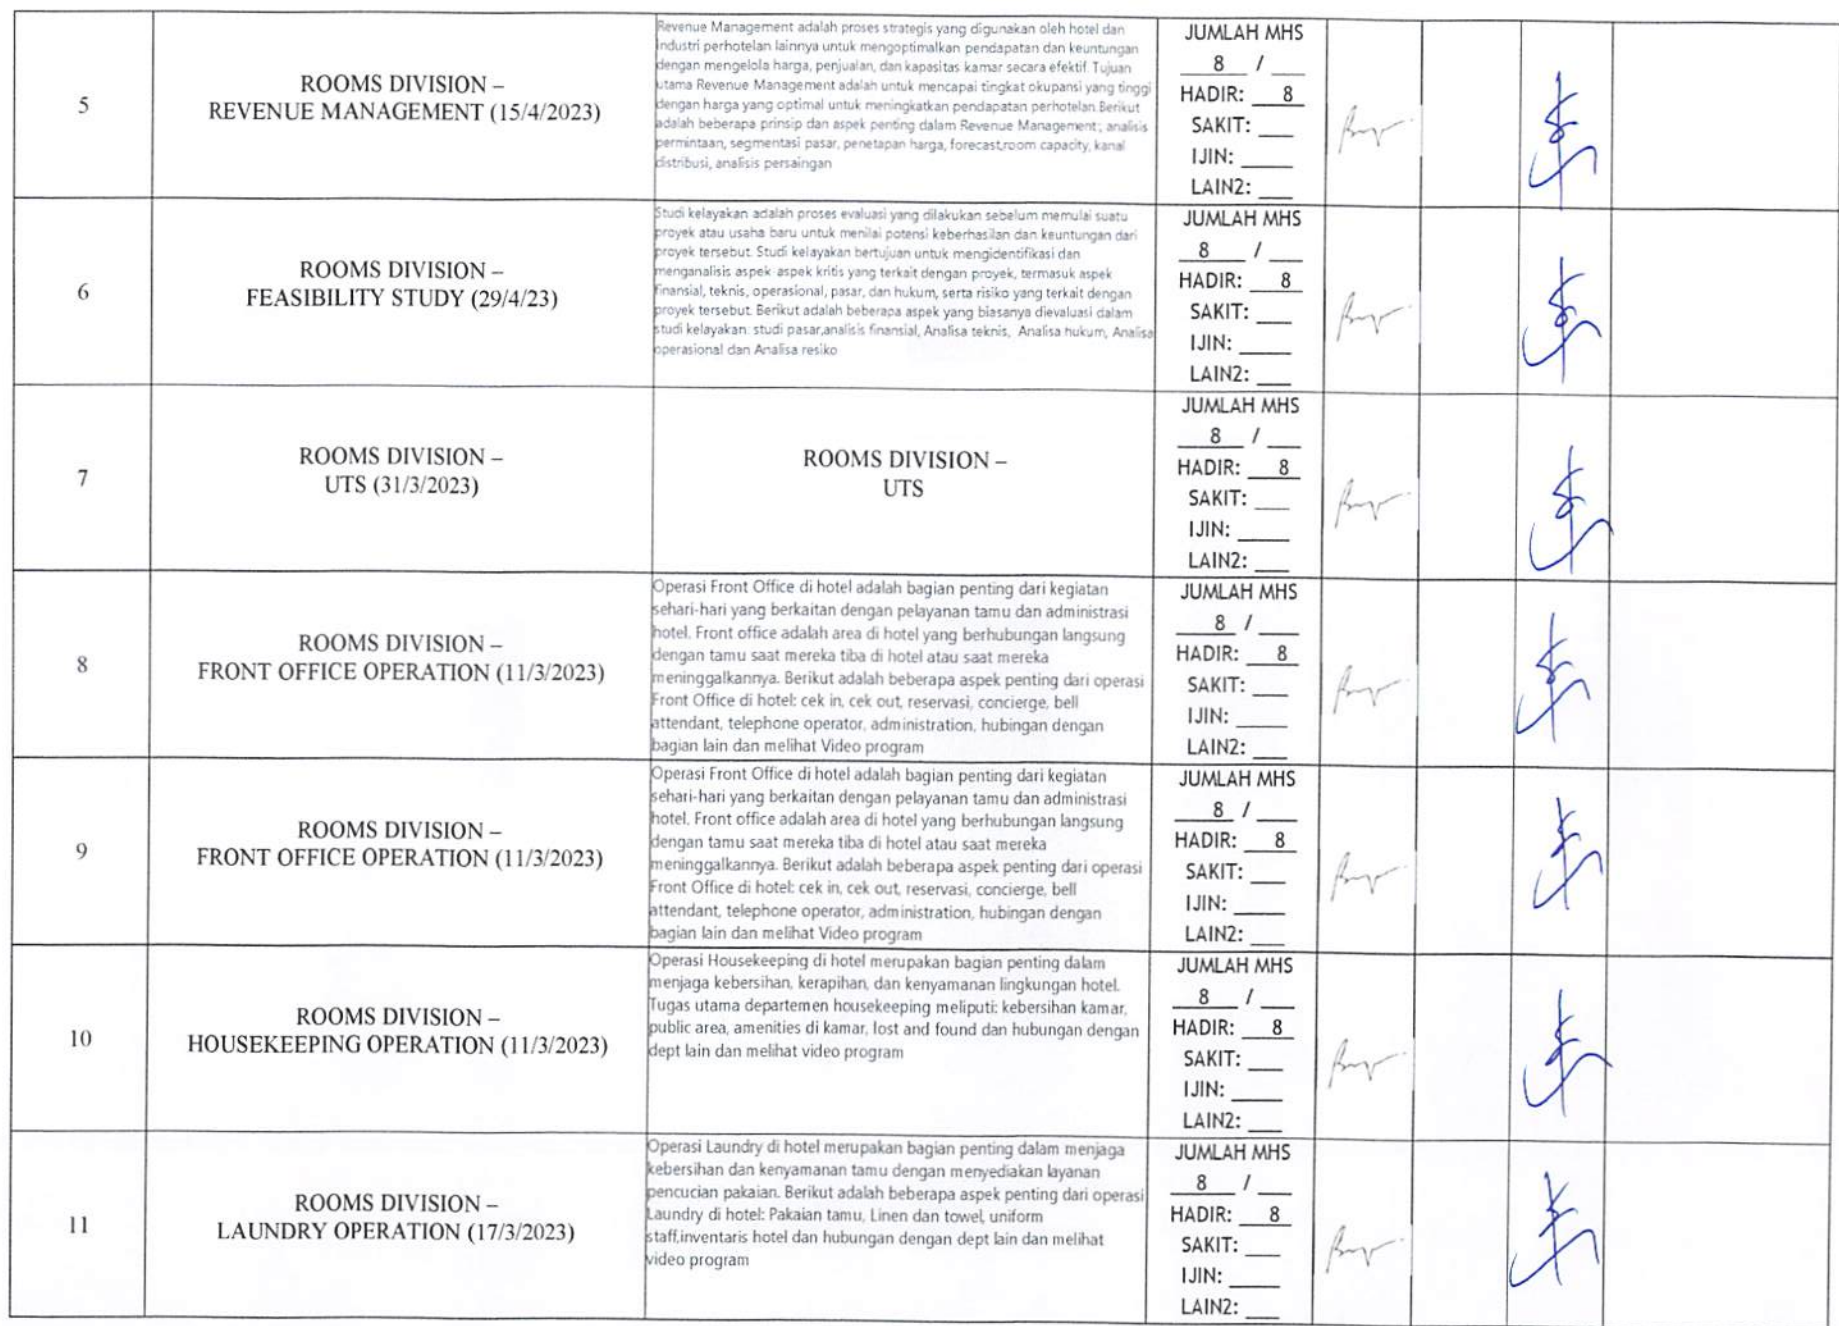 5
ROOMS DIVISION –
REVENUE MANAGEMENT (15/4/2023)
Revenue Management adalah proses strategis yang digunakan oleh hotel dan
industri perhotelan lainnya untuk mengoptimalkan pendapatan dan keuntungan
dengan mengelola harga, penjualan, dan kapasitas kamar secara efektif. Tujuan
utama Revenue Management adalah untuk mencapai tingkat okupansi yang tinggi
dengan harga yang optimal untuk meningkatkan pendapatan perhotelan.Berikut
adalah beberapa prinsip dan aspek penting dalam Revenue Management; analisis
permintaan, segmentasi pasar, penetapan harga, forecast,room capacity, kanal
distribusi, analisis persaingan
JUMLAH MHS
8 / ___
HADIR: 8
SAKIT: ___
IJIN: ____
LAIN2: ___
6
ROOMS DIVISION –
FEASIBILITY STUDY (29/4/23)
Studi kelayakan adalah proses evaluasi yang dilakukan sebelum memulai suatu
proyek atau usaha baru untuk menilai potensi keberhasilan dan keuntungan dari
proyek tersebut. Studi kelayakan bertujuan untuk mengidentifikasi dan
menganalisis aspek-aspek kritis yang terkait dengan proyek, termasuk aspek
finansial, teknis, operasional, pasar, dan hukum, serta risiko yang terkait dengan
proyek tersebut. Berikut adalah beberapa aspek yang biasanya dievaluasi dalam
studi kelayakan: studi pasar,analisis finansial, Analisa teknis, Analisa hukum, Analisa
operasional dan Analisa resiko
JUMLAH MHS
8 / ___
HADIR: 8
SAKIT: ___
IJIN: ____
LAIN2: ___
7
ROOMS DIVISION –
UTS (31/3/2023)
ROOMS DIVISION –
UTS
JUMLAH MHS
8 / ___
HADIR: 8
SAKIT: ___
IJIN: ____
LAIN2: ___
8
ROOMS DIVISION –
FRONT OFFICE OPERATION (11/3/2023)
Operasi Front Office di hotel adalah bagian penting dari kegiatan
sehari-hari yang berkaitan dengan pelayanan tamu dan administrasi
hotel. Front office adalah area di hotel yang berhubungan langsung
dengan tamu saat mereka tiba di hotel atau saat mereka
meninggalkannya. Berikut adalah beberapa aspek penting dari operasi
Front Office di hotel: cek in, cek out, reservasi, concierge, bell
attendant, telephone operator, administration, hubingan dengan
bagian lain dan melihat Video program
JUMLAH MHS
8 / ___
HADIR: 8
SAKIT: ___
IJIN: ____
LAIN2: ___
9
ROOMS DIVISION –
FRONT OFFICE OPERATION (11/3/2023)
Operasi Front Office di hotel adalah bagian penting dari kegiatan
sehari-hari yang berkaitan dengan pelayanan tamu dan administrasi
hotel. Front office adalah area di hotel yang berhubungan langsung
dengan tamu saat mereka tiba di hotel atau saat mereka
meninggalkannya. Berikut adalah beberapa aspek penting dari operasi
Front Office di hotel: cek in, cek out, reservasi, concierge, bell
attendant, telephone operator, administration, hubingan dengan
bagian lain dan melihat Video program
JUMLAH MHS
8 / ___
HADIR: 8
SAKIT: ___
IJIN: ____
LAIN2: ___
10
ROOMS DIVISION –
HOUSEKEEPING OPERATION (11/3/2023)
Operasi Housekeeping di hotel merupakan bagian penting dalam
menjaga kebersihan, kerapihan, dan kenyamanan lingkungan hotel.
Tugas utama departemen housekeeping meliputi: kebersihan kamar,
public area, amenities di kamar, lost and found dan hubungan dengan
dept lain dan melihat video program
JUMLAH MHS
8 / ___
HADIR: 8
SAKIT: ___
IJIN: ____
LAIN2: ___
11
ROOMS DIVISION –
LAUNDRY OPERATION (17/3/2023)
Operasi Laundry di hotel merupakan bagian penting dalam menjaga
kebersihan dan kenyamanan tamu dengan menyediakan layanan
pencucian pakaian. Berikut adalah beberapa aspek penting dari operasi
Laundry di hotel: Pakaian tamu, Linen dan towel, uniform
staff,inventaris hotel dan hubungan dengan dept lain dan melihat
video program
JUMLAH MHS
8 / ___
HADIR: 8
SAKIT: ___
IJIN: ____
LAIN2: ___